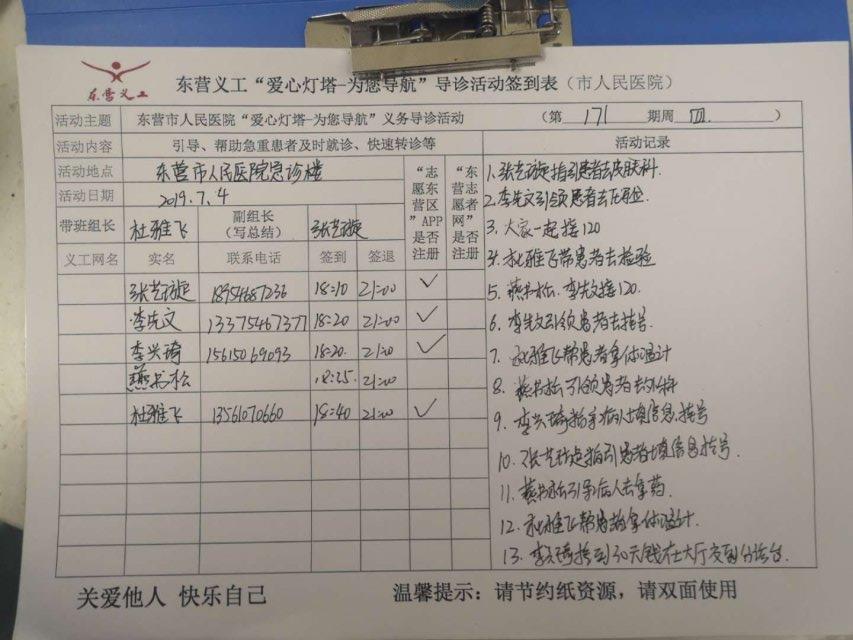 东营义工
东营义工“爱心灯塔-为您导航”导诊活动签到表（市人民医院）
活动主题 东营市人民医院“爱心灯塔-为您导航”义务导诊活动 （第 171 期周 四 ）
活动内容 引导、帮助急重患者及时就诊、快速转诊等 活动记录
活动地点 东营市人民医院急诊楼
活动日期 2019.7.4
“志愿东营区”APP是否注册
“东营志愿者网”是否注册
带班组长 杜雅飞 副组长（写总结） 张艺璇
义工网名 实名 联系电话 签到 签退
张艺璇 18954687236 18:10 21:00 ✓
李先文 13375467377 18:20 21:00 ✓
李兴琦 15615069093 18:20. 21:00 ✓
燕书松 18:25. 21:00
杜雅飞 13561070660 18:40 21:00 ✓
1.张艺璇指引患者去皮肤科.
2.李先文引领患者去
3.大家一起接120
4.杜雅飞带患者去检验
5.燕书松.李先文接120.
6.李先文引领患者去挂号.
7.杜雅飞带患者拿体温计
8.燕书松引领患者去外科
9.李兴琦指导病人填信息.挂号
10.张艺璇指引患者填信息挂号.
11.燕书松引导病人去拿药.
12.杜雅飞帮患者拿体温计.
13.李兴琦捡到30元钱在大厅交到分诊台.
关爱他人 快乐自己
温馨提示：请节约纸资源，请双面使用